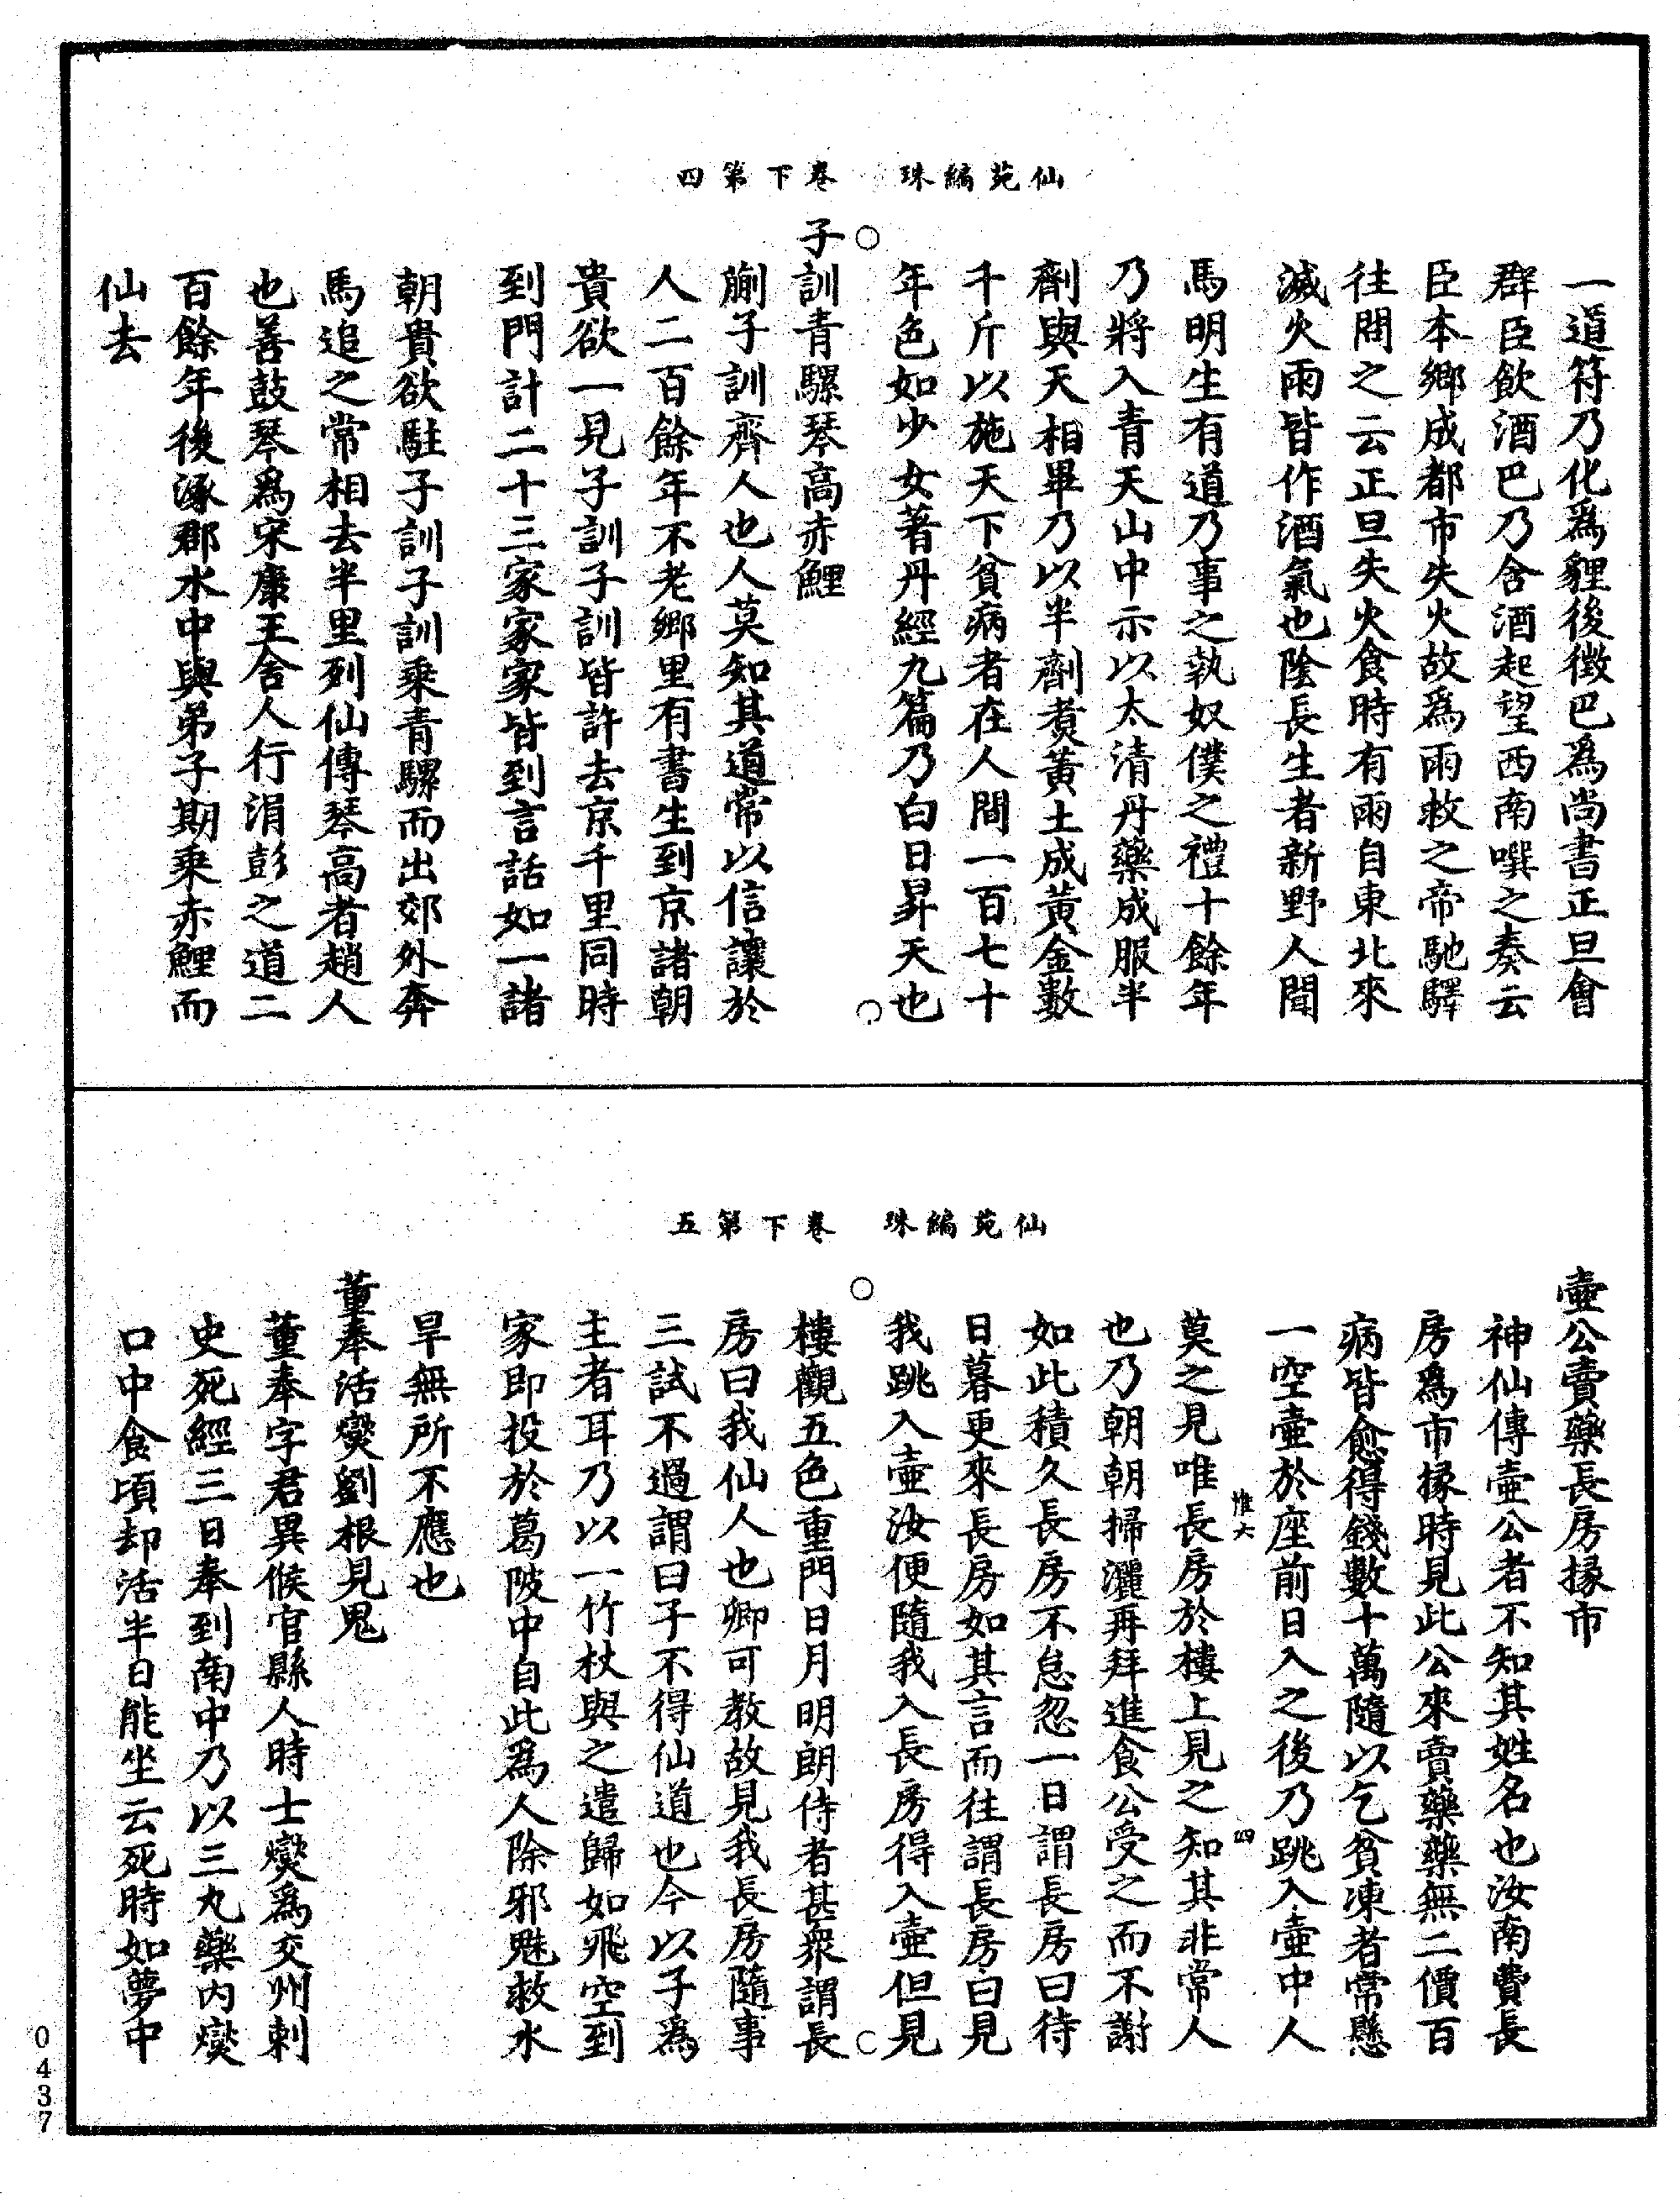 仙苑編珠　卷下第四
一道符乃化爲貍後徵巴爲尚書正旦會
群臣飲酒巴乃含酒起望西南噀之奏云
臣本鄉成都市失火故爲雨救之帝馳驛
往問之云正旦失火食時有雨自東北來
滅火雨皆作酒氣也陰長生者新野人聞
馬明生有道乃事之執奴僕之禮十餘年
乃將入青天山中示以太清丹藥成服半
劑與天相畢乃以半劑煑黃土成黃金數
千斤以施天下貧病者在人間一百七十
年色如少女著丹經九篇乃白日昇天也
子訓青騾琴高赤鯉
蒯子訓齊人也人莫知其道常以信讓於
人二百餘年不老鄉里有書生到京諸朝
貴欲一見子訓子訓皆許去京千里同時
到門計二十三家家家皆到言話如一諸
朝貴欲駐子訓子訓乘青騾而出郊外奔
馬追之常相去半里列仙傳琴高者趙人
也善鼓琴爲宋康王舍人行涓彭之道二
百餘年後涿郡水中與弟子期乘赤鯉而
仙去
仙苑編珠　卷下第五
壷公賣藥長房掾市
神仙傳壷公者不知其姓名也汝南費長
房爲市掾時見此公來賣藥藥無二價百
病皆愈得錢數十萬隨以乞貧凍者常懸
一空壷於座前日入之後乃跳入壷中人
惟六　四
莫之見唯長房於樓上見之知其非常人
也乃朝朝掃灑再拜進食公受之而不謝
如此積久長房不怠忽一日謂長房曰待
日暮更來長房如其言而往謂長房曰見
我跳入壷汝便隨我入長房得入壷但見
樓觀五色重門日月明朗侍者甚衆謂長
房曰我仙人也卿可教故見我長房隨事
三試不過謂曰子不得仙道也今以子爲
主者耳乃以一竹杖與之遣歸如飛空到
家即投於葛陂中自此爲人除邪魅救水
旱無所不應也
董奉活燮劉根見鬼
董奉字君異候官縣人時士燮爲交州刺
史死經三日奉到南中乃以三丸藥內燮
口中食頃却活半日能坐云死時如夢中
0437